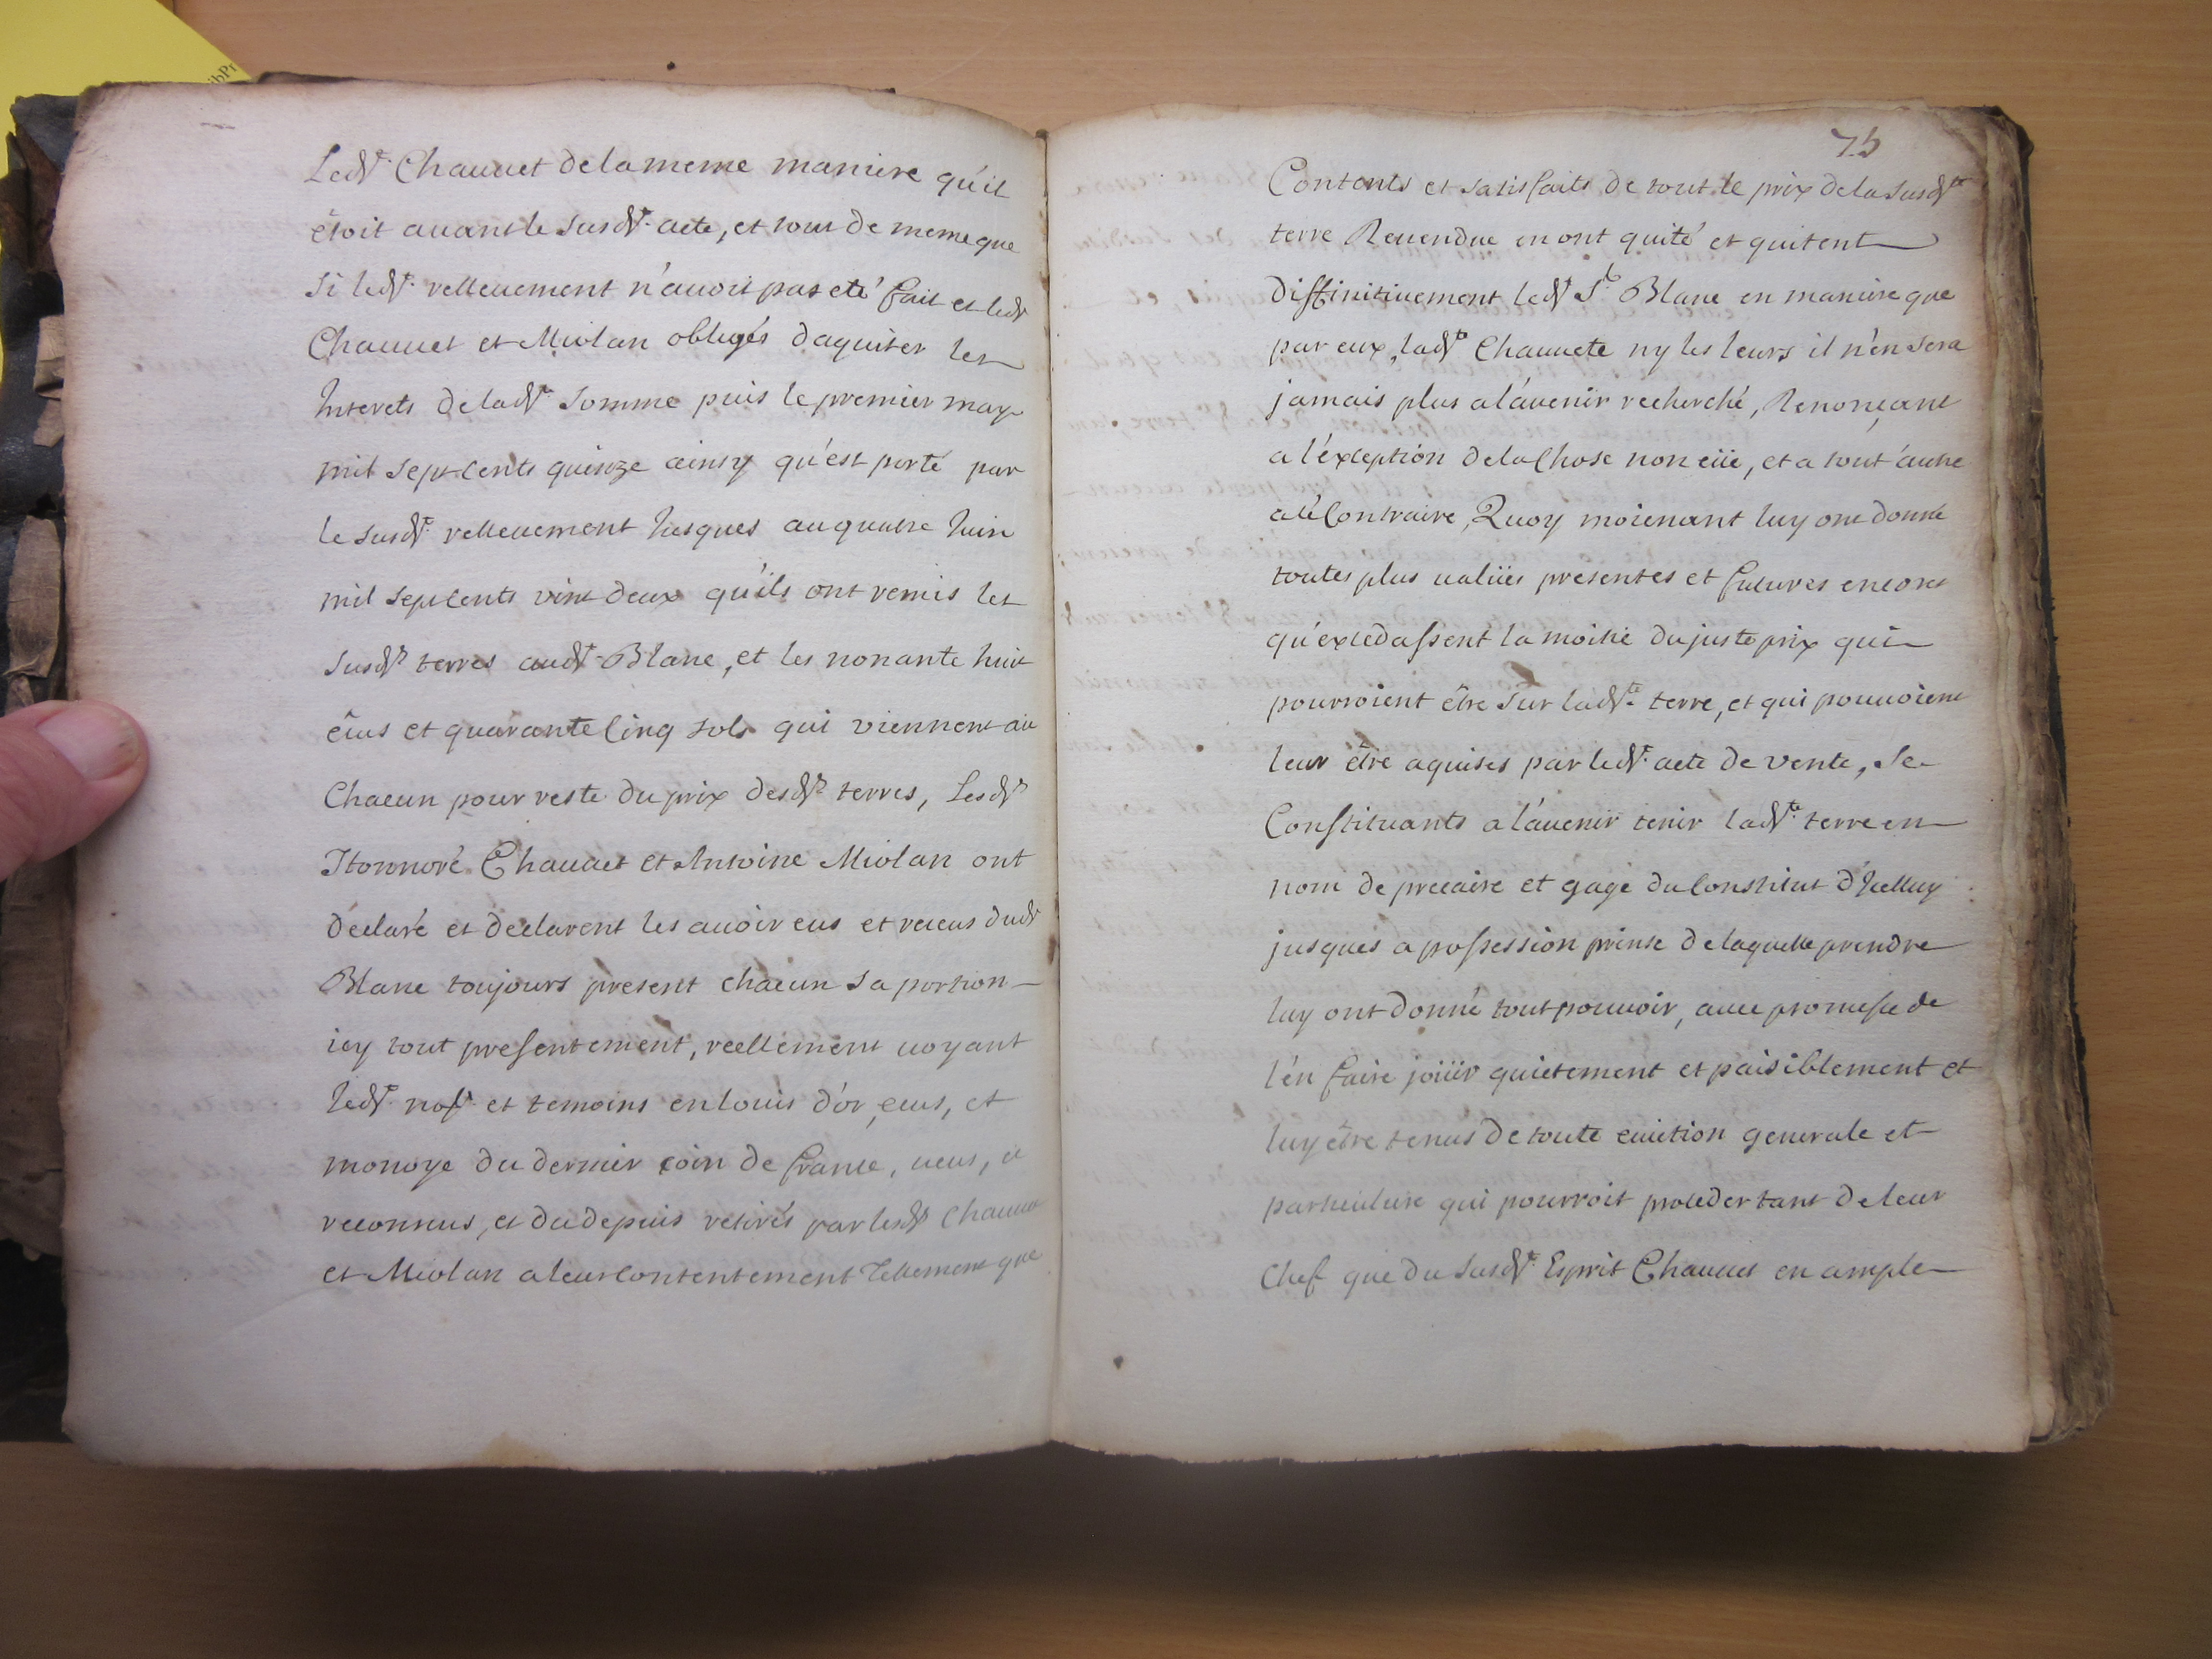 Led.t Chauvet de la meme maniere qu'il
étoit avant le susd.t acte, et tout de meme que
si led.t rellevement n'avoit pas eté fait et led.t
Chauvet et Miolan obligés d'aquiter les
Interets de lad.te somme puis le premier may
mil sept cents quinze ainsy qu'est porté par
le susd.t rellevement Jusques au quatre Juin
mil sept cents vint deux qu'ils ont remis les
susd.s terres aud.t Blanc, et les nonante huit
écus et quarante cinq sols qui viennent au
Chacun pour reste du prix desd.s terres, Lesd.s
Honnoré Chauvet et Antoine Miolan ont
declaré et declarent les avoir eus et receus dud.t
Blanc toujours present chacun sa portion
icy tout presentement, reellement voyant
led.t not.e et temoins en louis d'or, ecus, et
monoye du dernier coin de france, veus, et
reconnus, et du depuis retirés par lesd.s Chauvet
et Miolan a leur contentement tellement que
75
Contents et satisfaits de tout le prix de la susd.te
terre Revendue en ont quité et quitent
diffinitivement led.t S.r Blanc en maniere que
par eux, lad.te Chauvete ny les leurs il n'en sera
jamais plus a l'avenir recherché, Renonçant
a l'éxception de la Chose non eüe, et a tout autre
a ce Contraire, Quoy moienant luy ont donné
toutes plus valües presentes et futures encores
qu'excedassent la moitié du juste prix qui
pourroient être sur lad.te terre, et qui pouvoient
leur être aquises par led.t acte de vente, Se
Constituants a l'avenir tenir lad.te terre en
nom de precaire et gage du Constitut d'Icelluy
jusques a possession prinse de laquelle prendre
luy ont donné tout pouvoir, avec promesse de
l'en faire joüir quietement et paisiblement et
luy être tenus de toute eviction generale et
particuliere qui pourroit proceder tant de leur
Chef que du susd.t Esprit Chauvet en ample